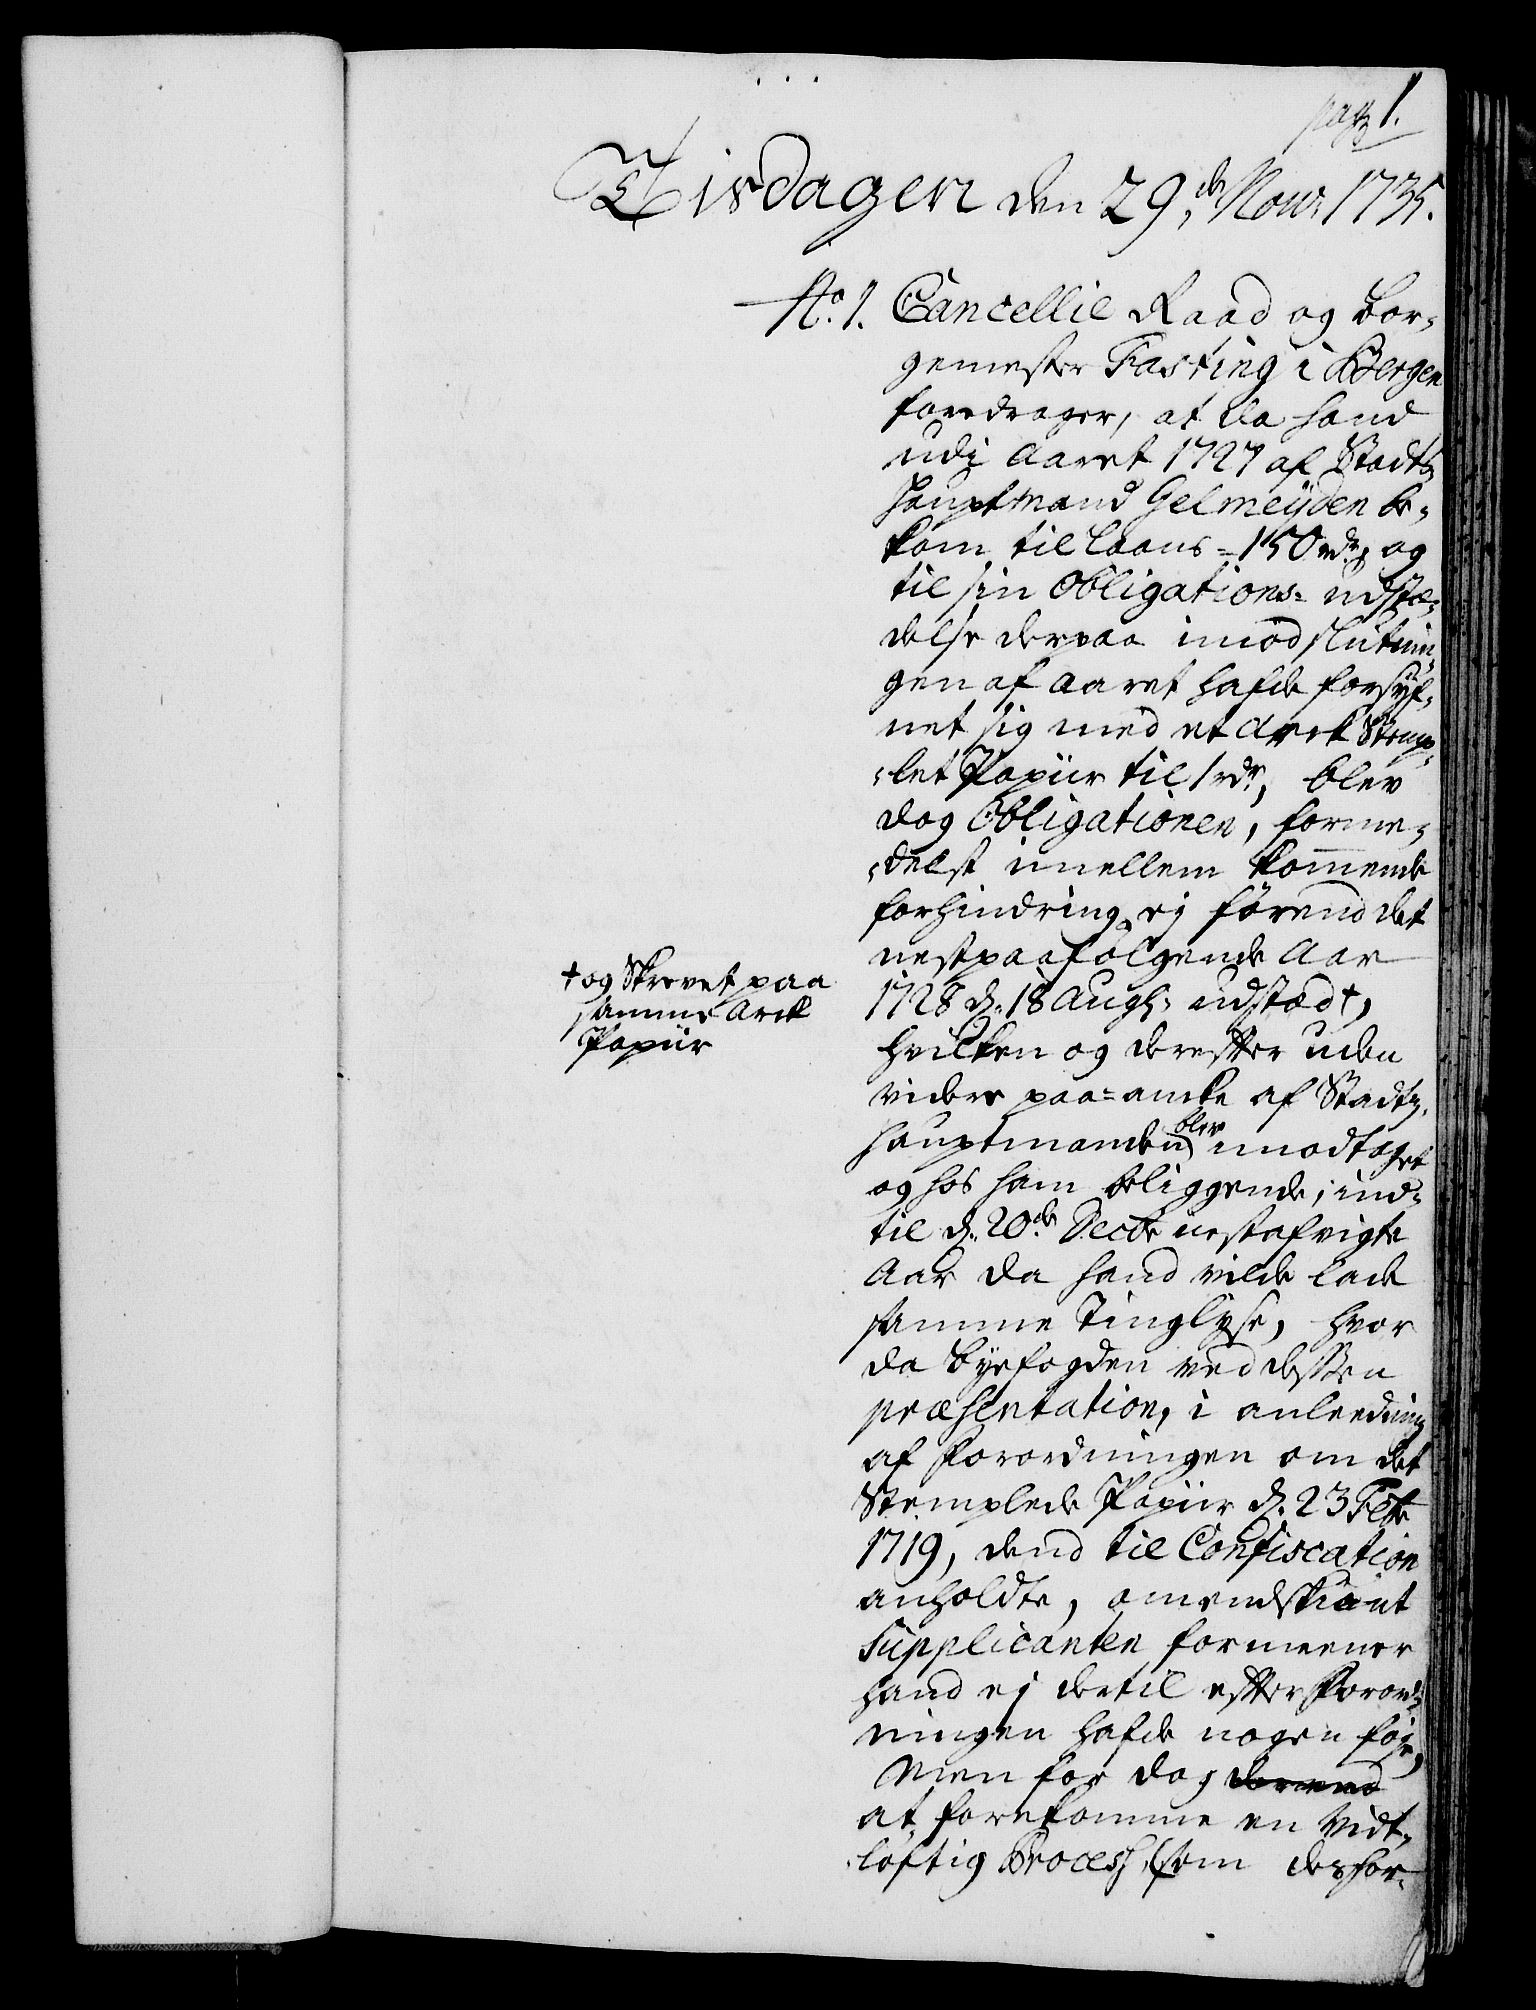 pag 1.
Tisdagen den 29de Nov: 1735.
No. 1. Cancellie Raad og Bor-
gemester Fasting i Bergen
foredrager, at da hand
udi Aaret 1727 af Stadtz
Hauptmand Gelmeÿden be-
kom til Laans = 150 rdr, og
til sin Obligations= udstæ-
delse derpaa imod slutnin-
gen af Aaret hafde forsÿf-
net sig med et Arck Stemp-
let Papiir til 1 rdr, blev
dog Obligationen, forme-
delst imellem kommende
forhindring, ej førend det
nestpaafølgende Aar
1728 d. 18 Aug: udstæd †,
† og Skrevet paa
samme Arck
Papiir
hvilken og derefter uden
videre paa=ancke af Stadtz-
hauptmanden blev imodtaget
og hos ham beliggende, ind-
til d. 20de Decbr nestafvigte
Aar da hand vilde lade
samme Tinglyse, hvor
da Byefogden ved dessen
præsentation, i anleedning
af Forordningen om det
Stemplede Papiir d. 23 Febr
1719, dend til Confiscation
anholdte, omendskiønt
Supplicanten formeener
hand ej dertil efter Forord-
ningen hafde nogen føje,
Men for dog
at forekomme en Vidt-
løftig Process, som desfor-